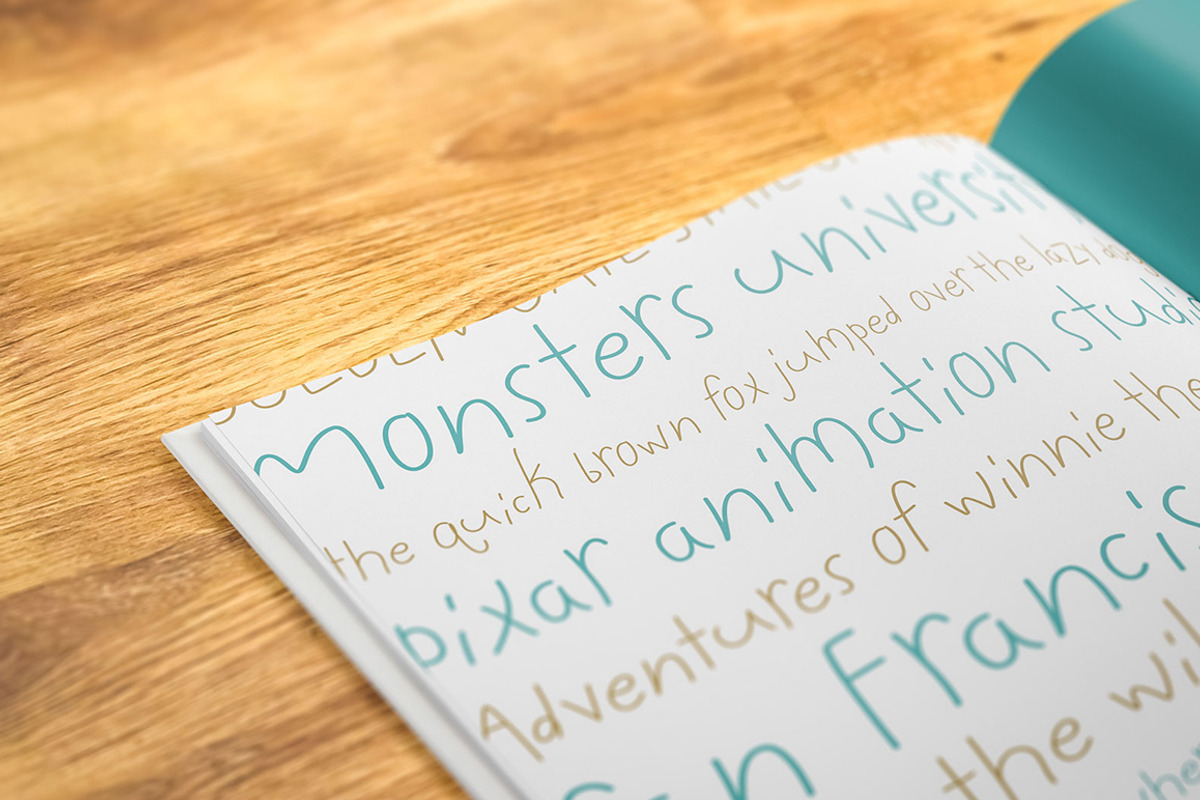 monsters universit
the quick brown fox jumped over the lazy
pixar animation studi
Adventures of winnie the
San Francis
the wil